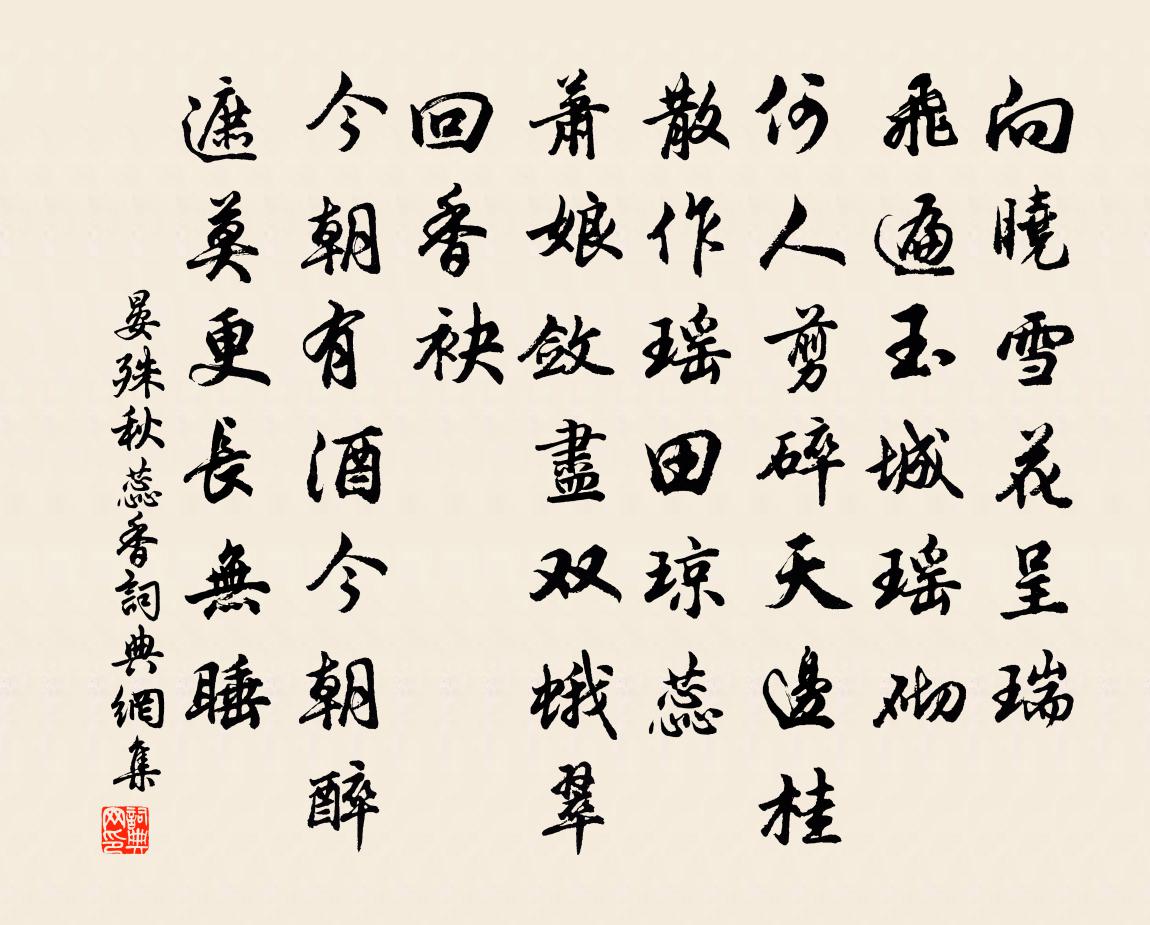 向曉雪花呈瑞
飛遍玉城瑶砌
何人剪碎天邊桂
散作瑶田琼蕊
萧娘斂盡双蛾翠
回香袂
今朝有酒今朝醉
遮莫更長無睡
晏殊秋蕊香詞典網集
詞典网印